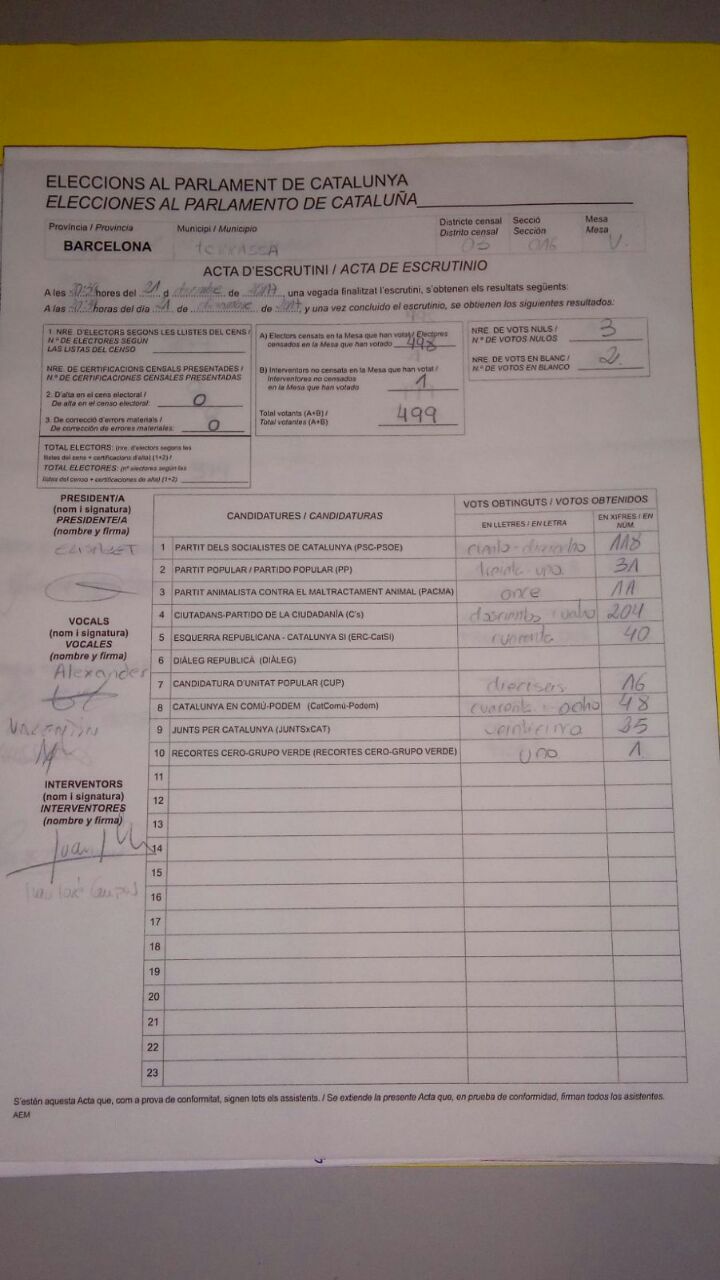 ELECCIONS AL PARLAMENT DE CATALUNYA
ELECCIONES AL PARLAMENTO DE CATALUÑA
Província / Provincia
BARCELONA
Municipi / Municipio
Terrassa
Districte censal
Distrito censal
Secció
Sección
016
Mesa
Mesa
ACTA D'ESCRUTINI / ACTA DE ESCRUTINIO
A les hores del 21 d de 2017, una vegada finalitzat l'escrutini, s'obtenen els resultats següents:
A las horas del día 21 de de 2017, y una vez concluido el escrutinio, se obtienen los siguientes resultados:
1. NRE. D'ELECTORS SEGONS LES LLISTES DEL CENS /
N.º DE ELECTORES SEGÚN
LAS LISTAS DEL CENSO
NRE. DE CERTIFICACIONS CENSALS PRESENTADES /
N.º DE CERTIFICACIONES CENSALES PRESENTADAS
2. D'alta en el cens electoral /
De alta en el censo electoral: 0
3. De correcció d'errors materials /
De corrección de errores materiales: 0
TOTAL ELECTORS: (nre. d'electors segons les
llistes del cens + certificacions d'alta) (1+2) /
TOTAL ELECTORES: (nº electores según las
listes del censo + certificaciones de alta) (1+2)
A) Electors censats en la Mesa que han votat / Electores
censados en la Mesa que han votado 498
B) Interventors no censats en la Mesa que han votat /
Interventores no censados
en la Mesa que han votado 1
Total votants (A+B) /
Total votantes (A+B) 499
NRE. DE VOTS NULS /
N.º DE VOTOS NULOS 3
NRE. DE VOTS EN BLANC /
N.º DE VOTOS EN BLANCO 2
PRESIDENT/A
(nom i signatura)
PRESIDENTE/A
(nombre y firma)
ELISABET
VOCALS
(nom i signatura)
VOCALES
(nombre y firma)
Alexander
VALENTIN
INTERVENTORS
(nom i signatura)
INTERVENTORES
(nombre y firma)
CANDIDATURES / CANDIDATURAS
VOTS OBTINGUTS / VOTOS OBTENIDOS
EN LLETRES / EN LETRA
EN XIFRES / EN NÚM.
1 PARTIT DELS SOCIALISTES DE CATALUNYA (PSC-PSOE) ciento dieciocho 118
2 PARTIT POPULAR / PARTIDO POPULAR (PP) treinta uno 31
3 PARTIT ANIMALISTA CONTRA EL MALTRACTAMENT ANIMAL (PACMA) once 11
4 CIUTADANS-PARTIDO DE LA CIUDADANÍA (C's) doscientos cuatro 204
5 ESQUERRA REPUBLICANA - CATALUNYA SI (ERC-CatSí) cuarenta 40
6 DIÀLEG REPUBLICÀ (DIÀLEG)
7 CANDIDATURA D'UNITAT POPULAR (CUP) dieciseis 16
8 CATALUNYA EN COMÚ-PODEM (CatComú-Podem) cuarenta ocho 48
9 JUNTS PER CATALUNYA (JUNTSxCAT) 25
10 RECORTES CERO-GRUPO VERDE (RECORTES CERO-GRUPO VERDE) uno 1
11
12
13
14
15
16
17
18
19
20
21
22
23
S'estén aquesta Acta que, com a prova de conformitat, signen tots els assistents. / Se extiende la presente Acta que, en prueba de conformidad, firman todos los asistentes.
AEM